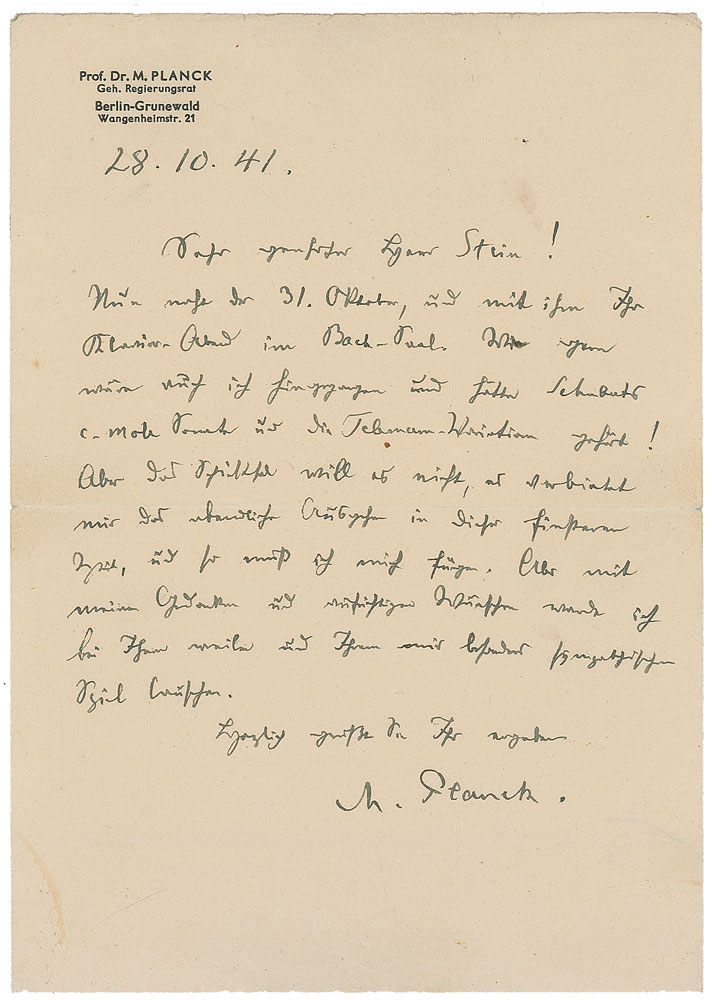 Prof. Dr. M. PLANCK
Geh. Regierungsrat
Berlin-Grunewald
Wangenheimstr. 21
28. 10. 41.
Sehr geehrter Herr Stein!
Nun naht der 31. Oktober, und mit ihm Ihr
Klavier-Abend im Bach-Saal. Wie gern
wäre auch ich hingegangen und hätte Schuberts
c-moll Sonate und die Telemann-Variation gehört!
Aber das Schicksal will es nicht, es verbietet
mir das abendliche Ausgehen in dieser finsteren
Zeit, und so muß ich mich fügen. Aber mit
meinen Gedanken und aufrichtigen Wünschen werde ich
bei Ihnen weilen und Ihrem mir besonders sympathischen
Spiel lauschen.
Herzlich grüßt Sie Ihr ergebener
M. Planck.